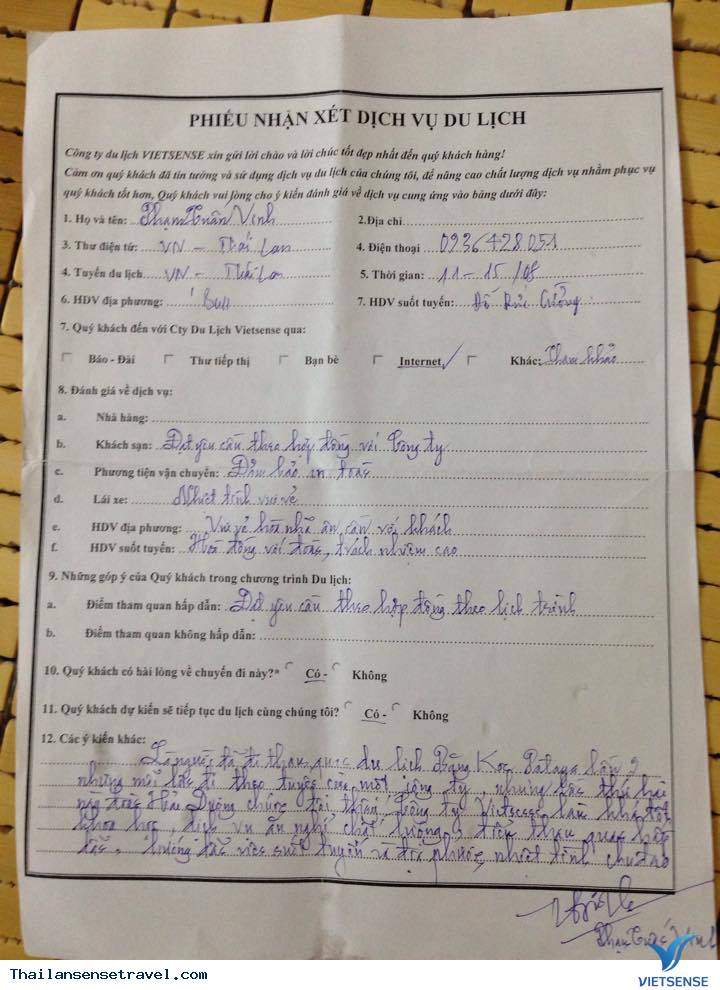 PHIẾU NHẬN XÉT DỊCH VỤ DU LỊCH
Công ty du lịch VIETSENSE xin gửi lời chào và lời chúc tốt đẹp nhất đến quý khách hàng!
Cảm ơn quý khách đã tin tưởng và sử dụng dịch vụ du lịch của chúng tôi, để nâng cao chất lượng dịch vụ nhằm phục vụ
quý khách tốt hơn, Quý khách vui lòng cho ý kiến đánh giá về dịch vụ cung ứng vào bảng dưới đây:
1. Họ và tên: Phạm Xuân Vinh 2.Địa chỉ
3. Thư điện tử: VN - Thái Lan 4. Điện thoại 0936428051
4. Tuyến du lịch VN - Thái Lan 5. Thời gian: 11 - 15/08
6. HDV địa phương: Bun 7. HDV suốt tuyến: Đỗ Đức Cường
7. Quý khách đến với Cty Du Lịch Vietsense qua:
Báo - Đài Thư tiếp thị Bạn bè Internet Khác: Tham khảo
8. Đánh giá về dịch vụ:
a. Nhà hàng:
b. Khách sạn: Đạt yêu cầu theo hợp đồng với Công ty
c. Phương tiện vận chuyển: Đảm bảo an toàn
d. Lái xe: Nhiệt tình vui vẻ
e. HDV địa phương: Vui vẻ hòa nhã ân cần với khách
f. HDV suốt tuyến: Hoà đồng với đoàn, trách nhiệm cao
9. Những góp ý của Quý khách trong chương trình Du lịch:
a. Điểm tham quan hấp dẫn: Đạt yêu cầu theo hợp đồng theo lịch trình
b. Điểm tham quan không hấp dẫn:
10. Quý khách có hài lòng về chuyến đi này?* Có - Không
11. Quý khách dự kiến sẽ tiếp tục du lịch cùng chúng tôi? Có - Không
12. Các ý kiến khác:
Là người đã đi tham quan du lịch Băng Koc Pataya lần 2
nhưng mỗi lần đi theo tuyến của một công ty, nhưng lần thứ hai
này đoàn Hải Dương chúng tôi thấy Công ty Vietsense làm khá tốt
khoa học, dịch vụ ăn nghỉ chất lượng, điểm tham quan hấp
dẫn, hướng dẫn viên suốt tuyến và địa phương nhiệt tình chu đáo
Thailansensetravel.com
VIETSENSE